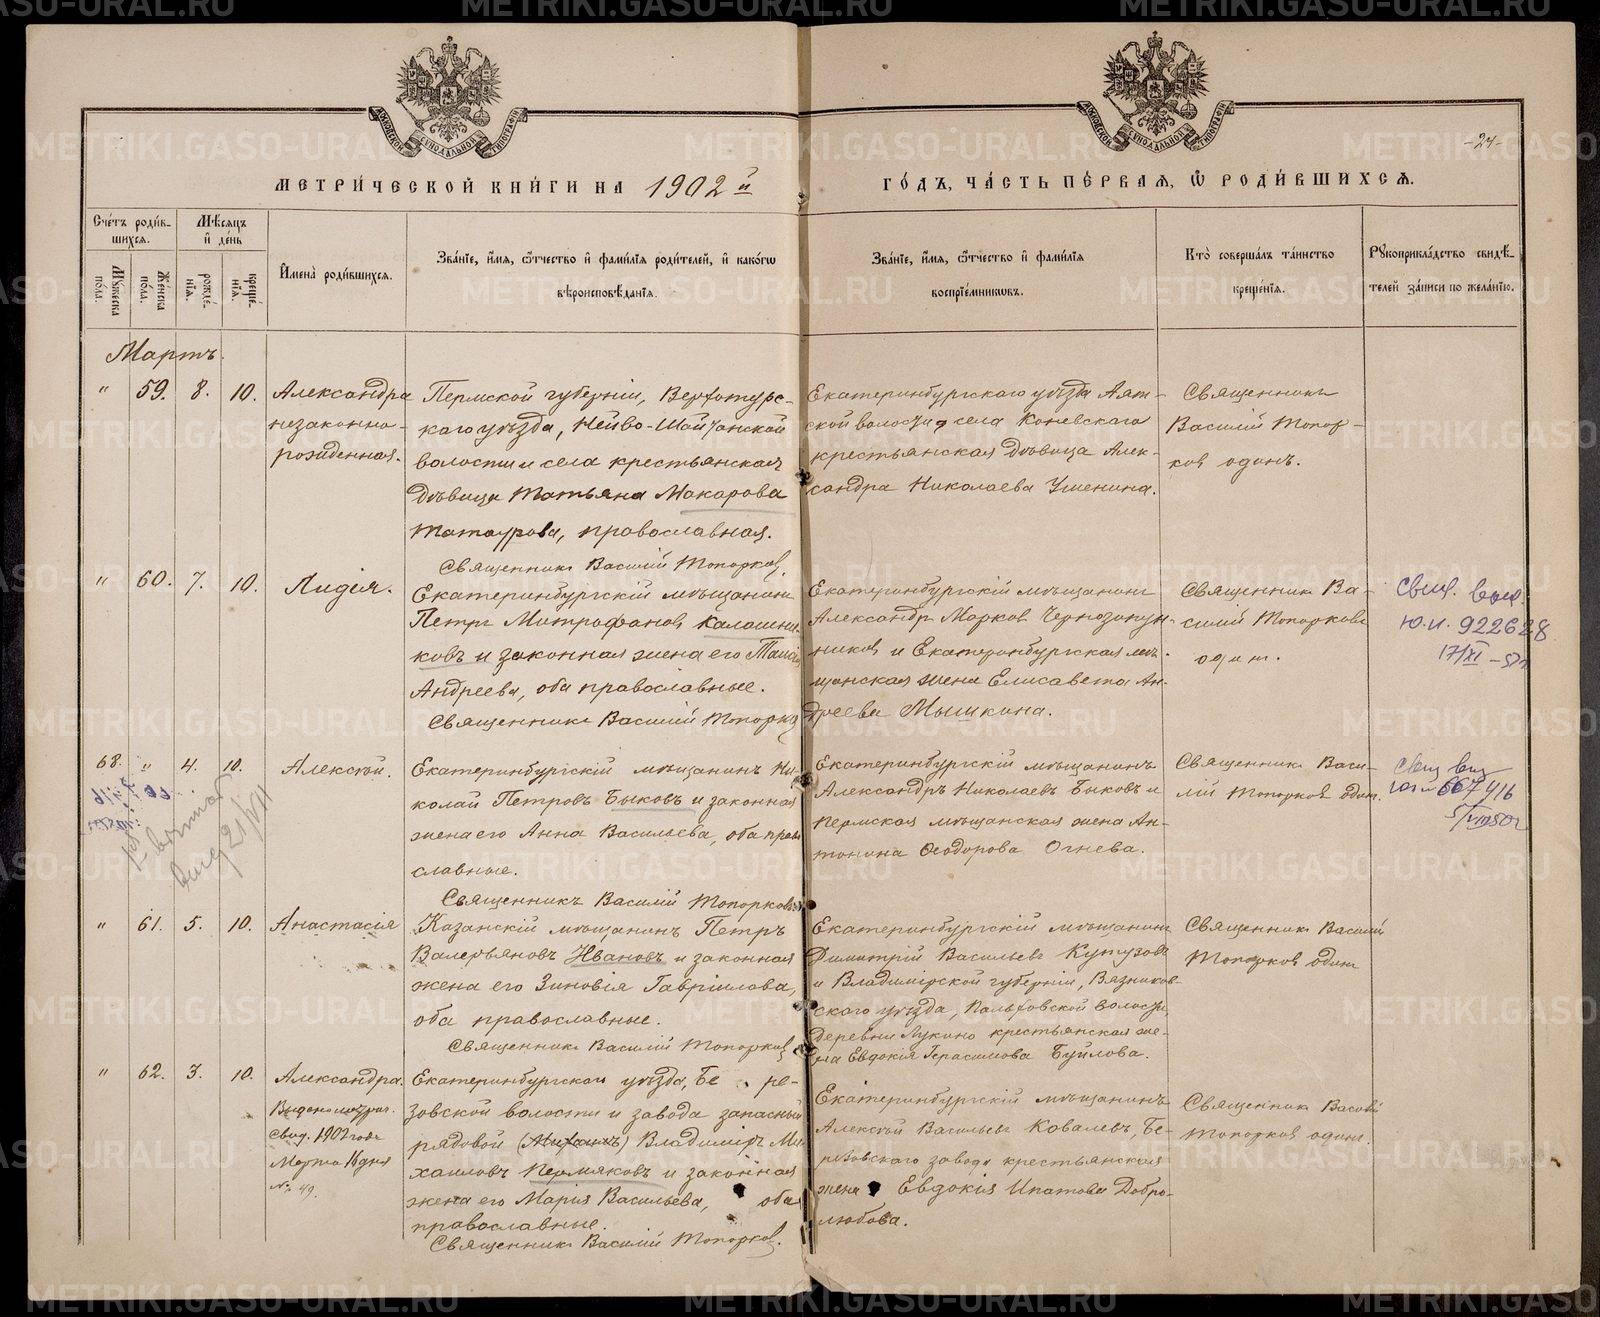 МЕТРИ́ЧЕСКОЙ КНИ́ГИ НА 1902 й
ГО́ДЪ, ЧА́СТЬ ПЕ́РВАЯ, Ѽ РОДИ́ВШИХСЯ.
-24-
МОСКОВСКОЙ СѴНОДАЛЬНОЙ ТИПОГРАФІИ
МОСКОВСКОЙ СѴНОДАЛЬНОЙ ТИПОГРАФІИ
Сче́тъ роди́в-
шихся.
Мѣ́сяцъ
и҆ де́нь
Мꙋ́жеска
по́ла.
Же́нска
по́ла.
рожде́-
нїѧ.
креще́-
нїѧ.
И҆мена̀ роди́вшихся.
Зва́нїе, и҆́мя, ѻ҆́тчество и҆ фами́лїя роди́телей, и҆ како́гѡ
вѣ́роисповѣ́данїя.
Зва́нїе, и҆́мя, ѻ҆́тчество и҆ фами́лїя
воспрїе́мникѡвъ.
Кто̀ соверша́лъ та́инство
креще́нїя.
Рꙋкоприкла́дство свидѣ́-
телей за́писи по жела́нїю.
Мартъ.
" 59. 8. 10.
Александра
незаконно-
рожденная.
Пермской губерніи, Верхотурс-
каго уѣзда, Нейво-Шайтанской
волости и села крестьянская
дѣвица Татьяна Макарова
Татаурова, православная.
Священникъ Василій Топорковъ.
Екатеринбургскаго уѣзда Аят-
ской волости, села Коневскаго
крестьянская дѣвица Алек-
сандра Николаева Ушенина.
Священникъ
Василій Топор-
ковъ одинъ.
" 60. 7. 10.
Лидія.
Екатеринбургскій мѣщанинъ
Петръ Митрофановъ Калашни-
ковъ и законная жена его Таисія
Андреева, оба православные.
Священникъ Василій Топорковъ
Екатеринбургскій мѣщанинъ
Александръ Марковъ
никовъ и Екатеринбургская мѣ-
щанская жена Елисавета Ан-
дреева Мышкина.
Священникъ Ва-
силій Топорковъ
одинъ.
Свид. выд.
Ю.И. 922628
17/XI
68. " 4. 10.
Алексѣй.
Екатеринбургскій мѣщанинъ Ни-
колай Петровъ Быковъ и законная
жена его Анна Васильева, оба право-
славные.
Священникъ Василій Топорковъ
Екатеринбургскій мѣщанинъ
Александръ Николаевъ Быковъ и
Пермская мѣщанская жена Ан-
тонина Ѳеодорова Огнева.
Священникъ Васи-
лій Топорковъ одинъ.
667416
" 61. 5. 10.
Анастасія
Казанскій мѣщанинъ Петръ
Валерьяновъ Ивановъ и законная
жена его Зиновія Гавріилова,
оба православные.
Священникъ Василій Топорковъ
Екатеринбургскій мѣщанинъ
Димитрій Васильевъ Кутузовъ
и Владимірской губерніи, Вязников-
скаго уѣзда, волости,
деревни Лукино крестьянская же-
на Евдокія Герасимова Буйлова.
Священникъ Василій
Топорковъ одинъ
" 62. 3. 10.
Александра.
Выдано метрич.
свид. 1902 года
Марта 16 дня
№ 49.
Екатеринбургскаго уѣзда, Бе ре-
зовской волости и завода запасный
рядовой (Михаилъ) Владиміръ Ми-
хаиловъ Пермяковъ и законная
жена его Марія Васильева, оба
православные.
Священникъ Василій Топорковъ.
Екатеринбургскій мѣщанинъ
Алексѣй Васильевъ Ковалевъ, Бе-
резовскаго завода крестьянская
жена Евдокія Ипатова Добро-
любова.
Священникъ Василій
Топорковъ одинъ.
METRIKI.GASO-URAL.RU